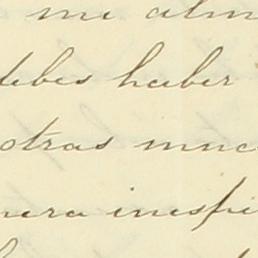 mi alm
debes haber
otras muc
nera inespe